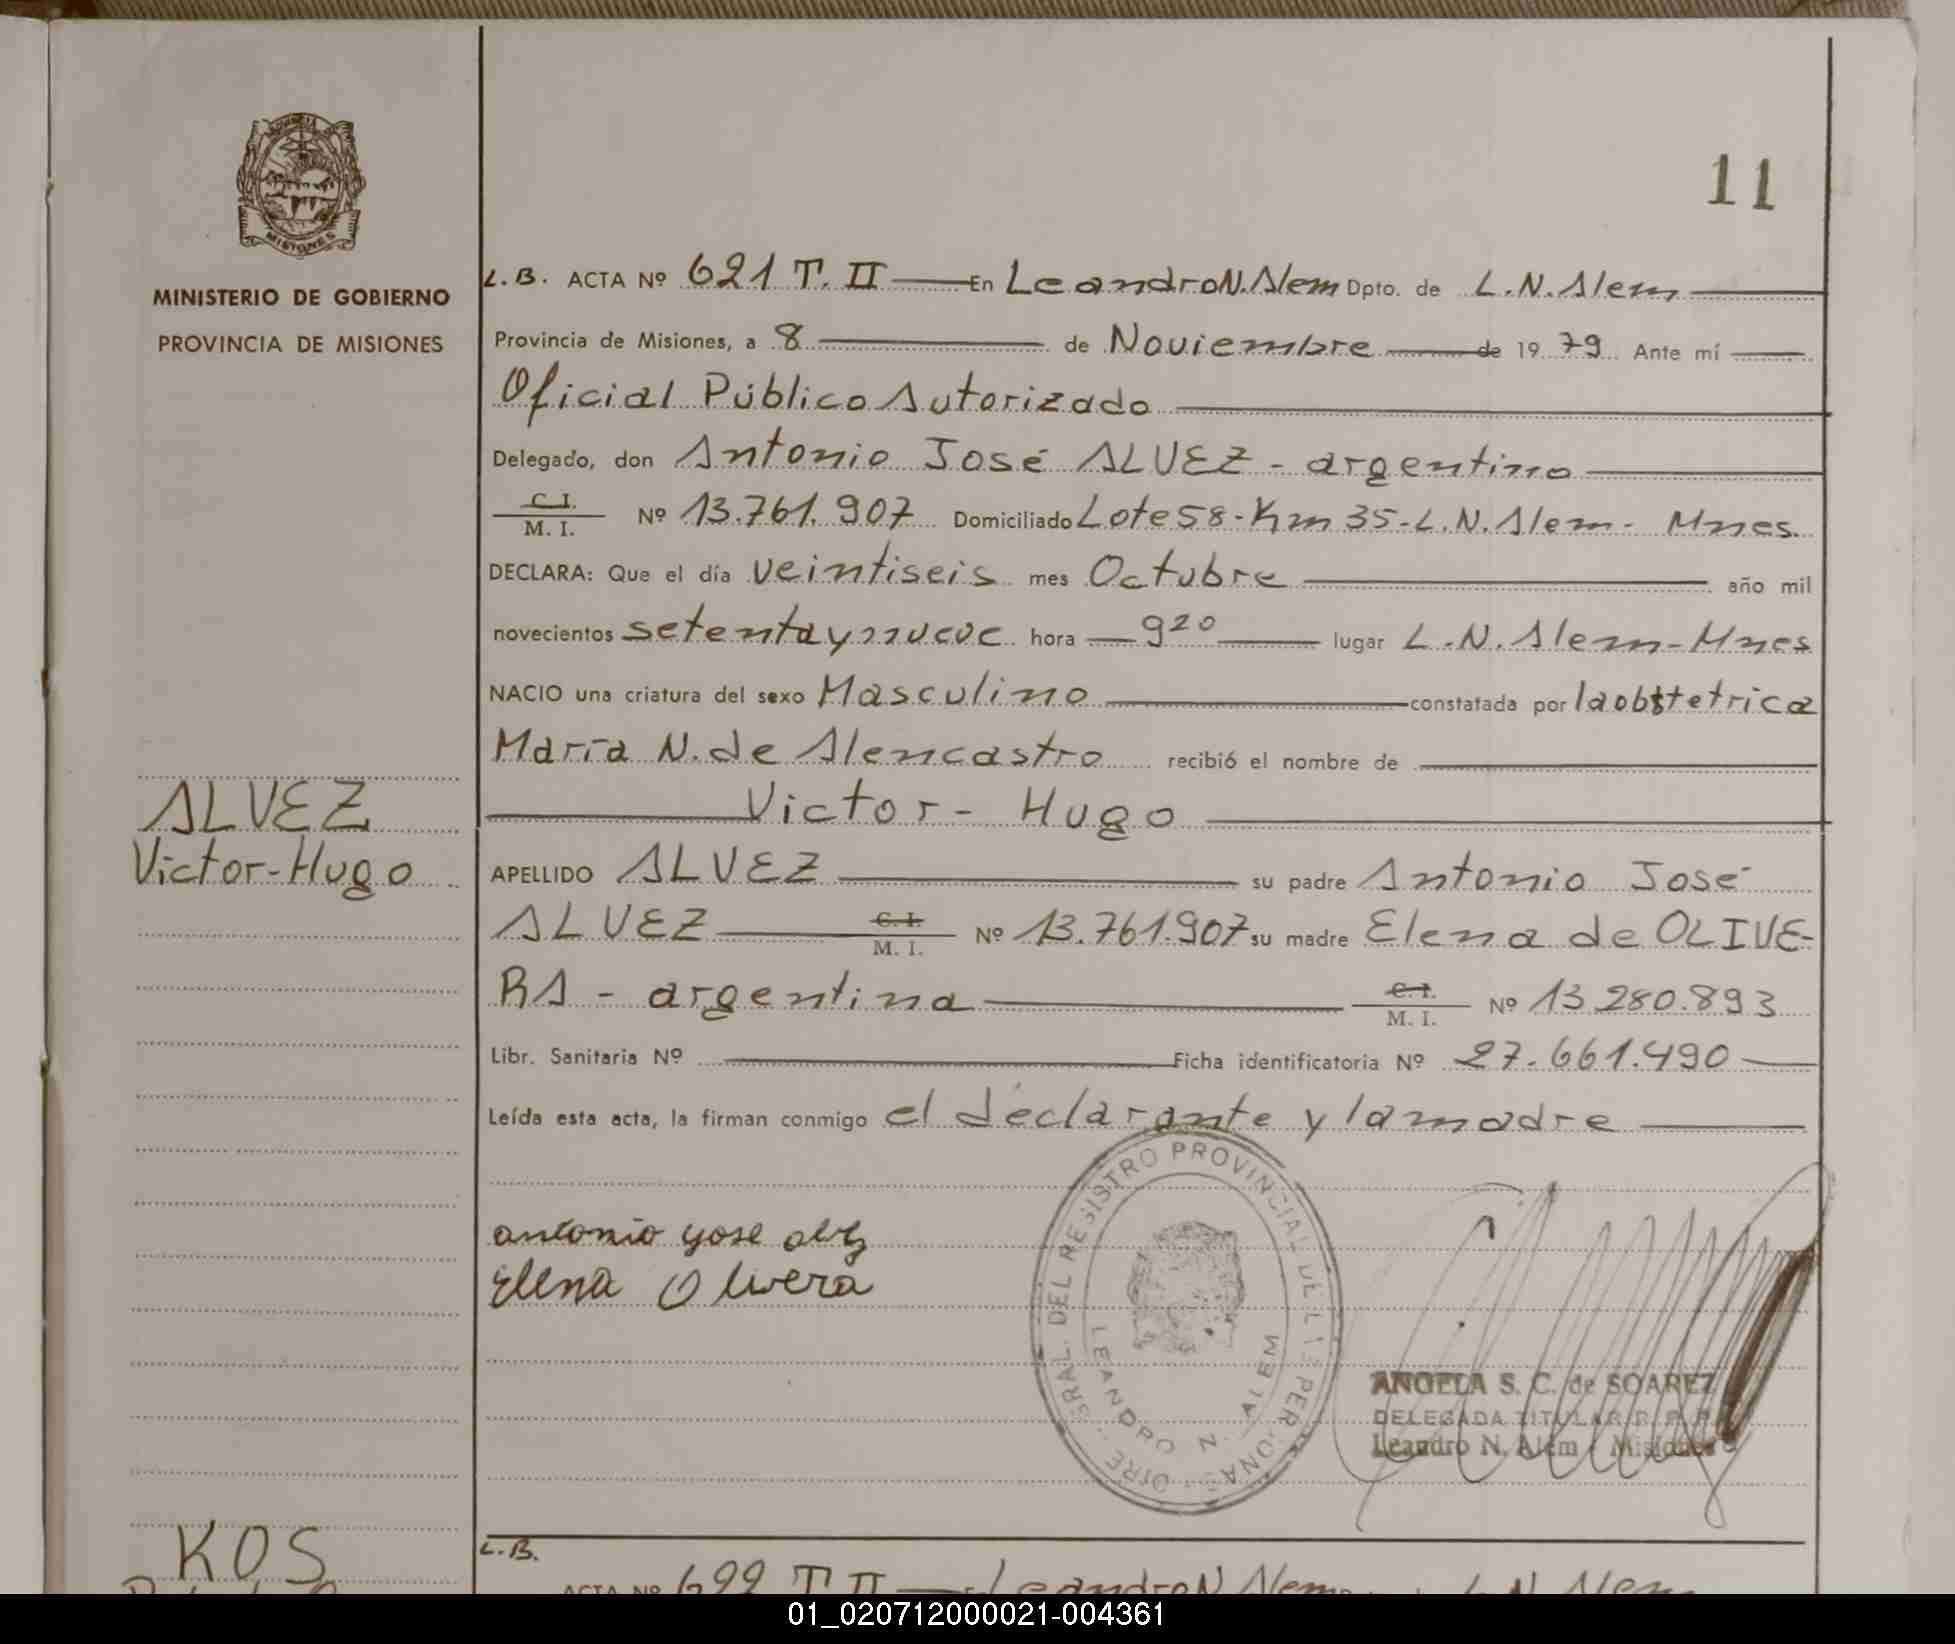 PROVINCIA
MISIONES
MINISTERIO DE GOBIERNO
PROVINCIA DE MISIONES
11
L.B. ACTA Nº 621 T. II En Leandro N. Alem Dpto. de L.N. Alem
Provincia de Misiones, a 8 de Noviembre de 1979 Ante mí
Oficial Público Autorizado
Delegado, don Antonio José ALVEZ - argentino
C.I. / M.I. Nº 13.761.907 Domiciliado Lote 58 - Km 35 - L.N. Alem - Mnes.
DECLARA: Que el día veintiseis mes Octubre año mil
novecientos setenta y nueve hora 9 20 lugar L.N. Alem - Mnes
NACIO una criatura del sexo Masculino constatada por la obstetrica
María N. de Alencastro recibió el nombre de
Victor - Hugo
ALVEZ
Victor - Hugo
APELLIDO ALVEZ su padre Antonio José
ALVEZ C.I. / M.I. Nº 13.761.907 su madre Elena de OLIVE-
RA - argentina C.I. / M.I. Nº 13.280.893
Libr. Sanitaria Nº Ficha identificatoria Nº 27.661.490
Leída esta acta, la firman conmigo el declarante y la madre
antonio yose
Elena Olivera
DEL REGISTRO PROVINCIAL DE PERSONAS
LEANDRO N. ALEM
ANGELA S. C. de SOAREZ
DELEGADA TITULAR R. P. P.
Leandro N. Alem - Misiones
KOS
L.B.
ACTA Nº 622 T. II En Leandro N. Alem L.N. Alem
01_020712000021-004361